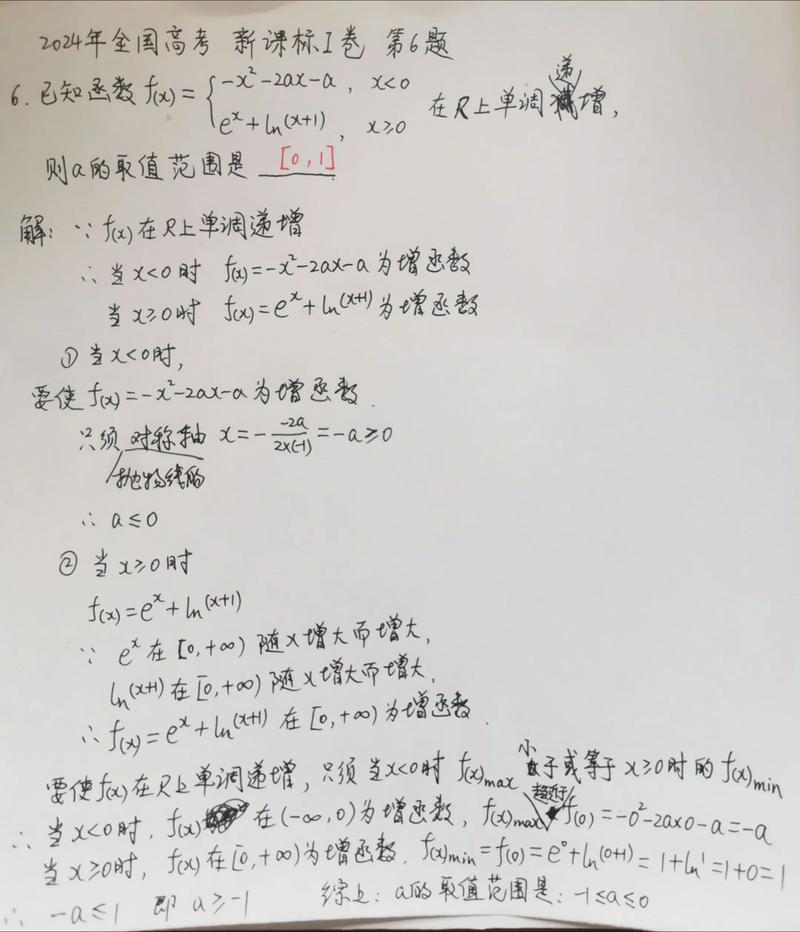 2024年全国高考 新课标I卷 第6题
6. 已知函数 f(x) = { -x²-2ax-a, x<0
e^x + ln(x+1), x≥0 在R上单调递增,
则a的取值范围是 [0,1]
解: ∵ f(x)在R上单调递增
∴ 当x<0时 f(x)=-x²-2ax-a为增函数
当x≥0时 f(x)=e^x+ln(x+1)为增函数
① 当x<0时,
要使f(x)=-x²-2ax-a为增函数.
只须抛物线的对称轴 x=-\frac{-2a}{2×(-1)}=-a≥0
∴ a≤0
② 当x≥0时
f(x)=e^x+ln(x+1)
∵ e^x在[0,+∞)随x增大而增大,
ln(x+1)在[0,+∞)随x增大而增大,
∴ f(x)=e^x+ln(x+1)在[0,+∞)为增函数.
要使f(x)在R上单调递增, 只须当x<0时 f(x)max 小于或等于x≥0时的f(x)min
∴ 当x<0时, f(x)在(-∞,0)为增函数, f(x)max趋近于f(0)=-0²-2a×0-a=-a
当x≥0时, f(x)在[0,+∞)为增函数. f(x)min=f(0)=e⁰+ln(0+1)=1+ln1=1+0=1
∴ -a≤1 即 a≥-1 综上: a的取值范围是: -1≤a≤0